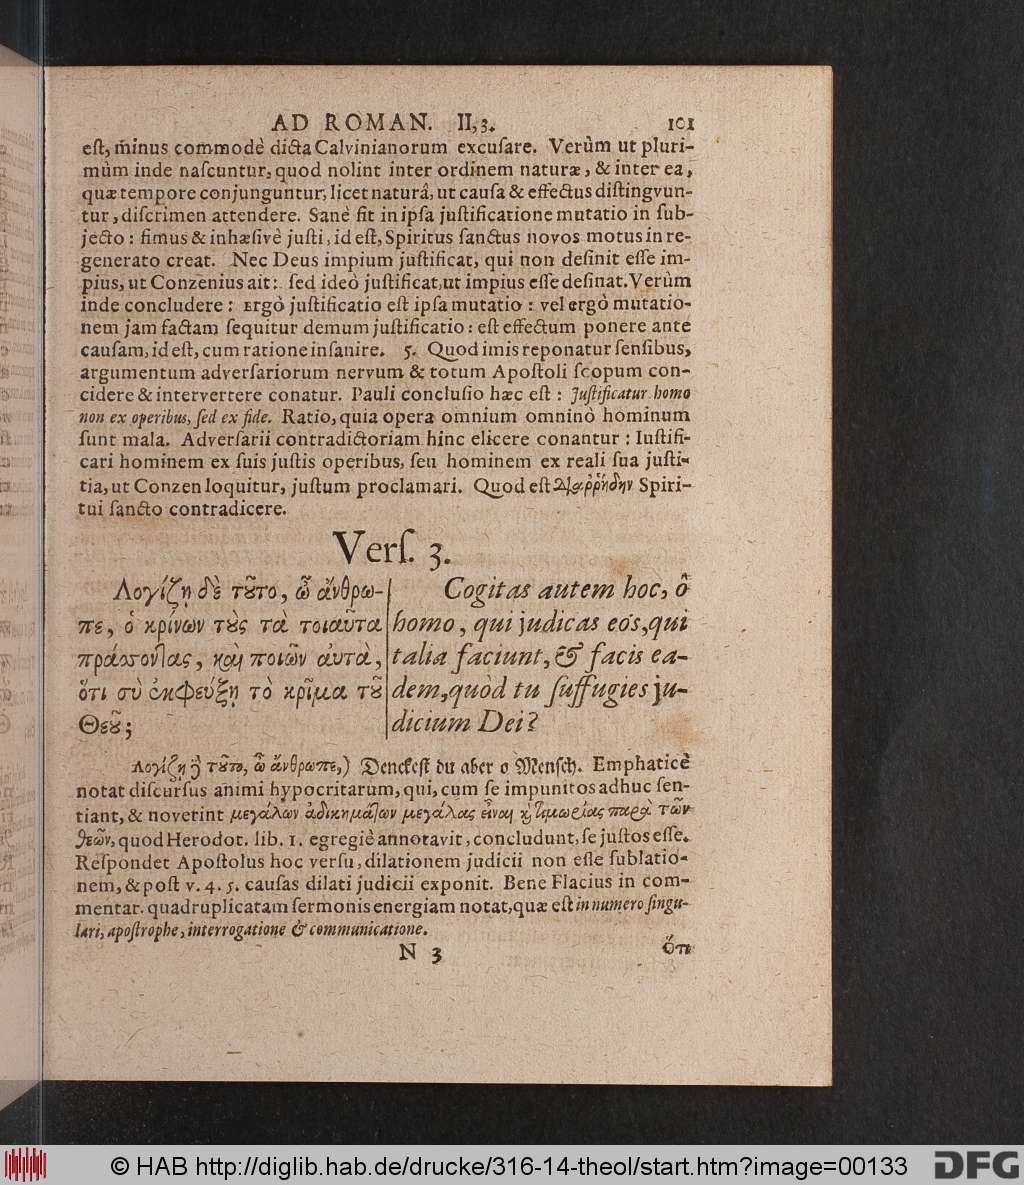 AD ROMAN. II, 3. 101
eſt, minus commodè dicta Calvinianorum excuſare. Verùm ut pluri-
mùm inde naſcuntur, quod nolint inter ordinem naturæ, & inter ea,
quæ tempore conjunguntur, licet naturâ, ut cauſa & effectus diſtingvun-
tur, diſcrimen attendere. Sanè fit in ipſa juſtificatione mutatio in ſub-
jecto: fimus & inhæſivè juſti, id eſt, Spiritus ſanctus novos motus in re-
generato creat. Nec Deus impium juſtificat, qui non definit eſſe im-
pius, ut Conzenius ait: ſed ideò juſtificat, ut impius eſſe deſinat. Verùm
inde concludere: ergò juſtificatio eſt ipſa mutatio: vel ergò mutatio-
nem jam factam ſequitur demum juſtificatio: eſt effectum ponere ante
cauſam, id eſt, cum ratione inſanire. 5. Quod imis reponatur ſenſibus,
argumentum adverſariorum nervum & totum Apoſtoli ſcopum con-
cidere & intervertere conatur. Pauli concluſio hæc eſt: Juſtificatur homo
non ex operibus, ſed ex fide. Ratio, quia opera omnium omninò hominum
ſunt mala. Adverſarii contradictoriam hinc elicere conantur: Iuſtifi-
cari hominem ex ſuis juſtis operibus, ſeu hominem ex reali ſua juſti-
tia, ut Conzen loquitur, juſtum proclamari. Quod eſt διαῤῥήδην Spiri-
tui ſancto contradicere.
Verſ. 3.
Λογίζῃ δὲ τοῦτο, ὦ ἄνθρω-
πε, ὁ κρίνων τοὺς τὰ τοιαῦτα
πράσσοντας, καὶ ποιῶν αὐτὰ,
ὅτι σὺ ἐκφεύξῃ τὸ κρῖμα τοῦ
Θεοῦ;
Cogitas autem hoc, ô
homo, qui judicas eos, qui
talia faciunt, & facis ea-
dem, quòd tu ſuffugies ju-
dicium Dei?
Λογίζῃ δὲ τοῦτο, ὦ ἄνθρωπε,) Denckeſt du aber o Menſch. Emphaticè
notat diſcurſus animi hypocritarum, qui, cum ſe impunitos adhuc ſen-
tiant, & noverint μεγάλων ἀδικημάτων μεγάλας εἶναι καὶ τιμωρίας παρὰ τῶν
θεῶν, quod Herodot. lib. 1. egregiè annotavit, concludunt, ſe juſtos eſſe.
Reſpondet Apoſtolus hoc verſu, dilationem judicii non eſſe ſublatio-
nem, & poſt v. 4. 5. cauſas dilati judicii exponit. Bene Flacius in com-
mentar. quadruplicatam ſermonis energiam notat, quæ eſt in numero ſingu-
lari, apoſtrophe, interrogatione & communicatione.
N 3 Ὅτι
© HAB http://diglib.hab.de/drucke/316-14-theol/start.htm?image=00133 DFG